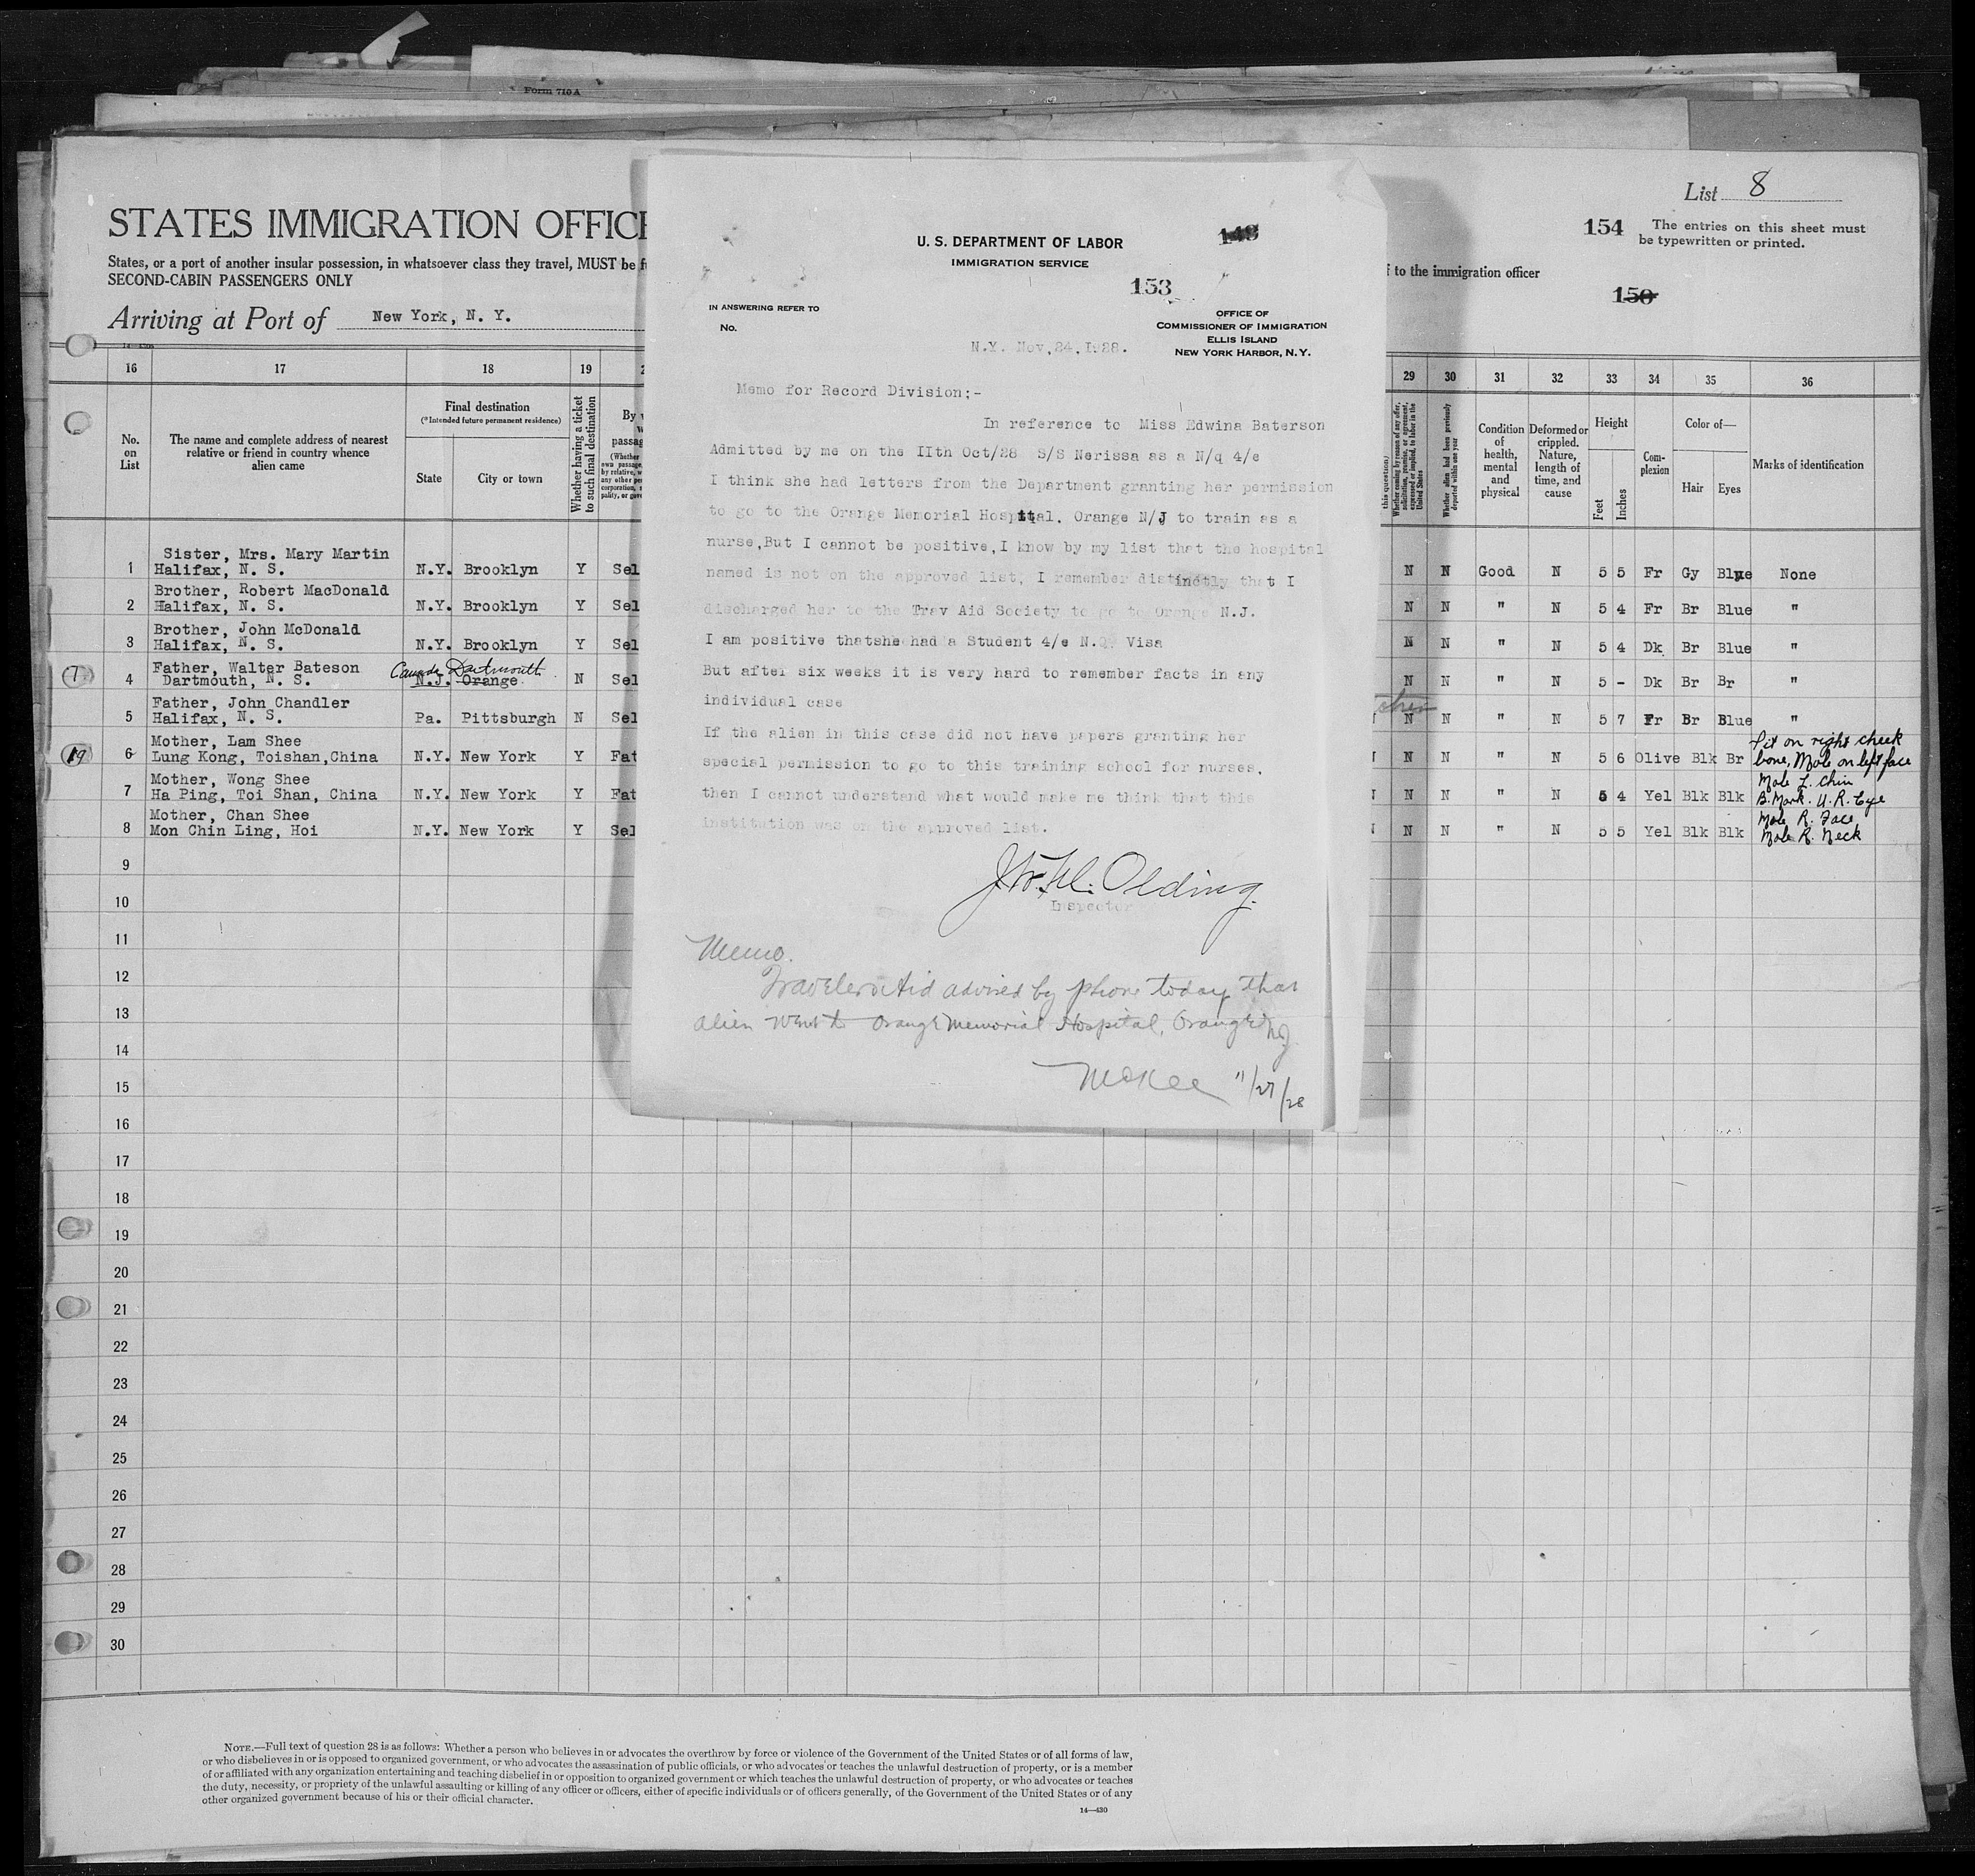 Form 710A
List 8
STATES IMMIGRATION OFFICE
154 The entries on this sheet must
be typewritten or printed.
States, or a port of another insular possession, in whatsoever class they travel, MUST be
to the immigration officer
SECOND-CABIN PASSENGERS ONLY
150
Arriving at Port of New York, N. Y.
U. S. DEPARTMENT OF LABOR
IMMIGRATION SERVICE
148
153
IN ANSWERING REFER TO
No.
OFFICE OF
COMMISSIONER OF IMMIGRATION
ELLIS ISLAND
NEW YORK HARBOR, N.Y.
N.Y. Nov,24,1928.
Memo for Record Division;-
In reference to Miss Edwina Baterson
Admitted by me on the IIth Oct/28 S/S Nerissa as a N/q 4/e
I think she had letters from the Department granting her permission
to go to the Orange Memorial Hospital. Orange N/J to train as a
nurse,But I cannot be positive,I know by my list that the hospital
named is not on the approved list, I remember distinctly that I
discharged her to the Trav Aid Society to go to Orange N.J.
I am positive thatshe had a Student 4/e N.Q Visa
But after six weeks it is very hard to remember facts in any
individual case
If the alien in this case did not have papers granting her
special permission to go to this training school for nurses.
then I cannot understand what would make me think that this
institution was on the approved list.
Olding.
Inspector
Memo.
Travelers Aid advised by phone today that
alien went to Orange Memorial Hospital, Orange NJ
McKee 11/27/28
16 17 18 19
29 30 31 32 33 34 35 36
No. on List
The name and complete address of nearest
relative or friend in country whence
alien came
Final destination
(*Intended future permanent residence)
State City or town
Whether having a ticket
to such final destination
this question)
Whether coming by reason of any offer,
solicitation, promise, or agreement,
expressed or implied, to labor in the
United States
Whether alien had been previously
deported within one year
Condition of health, mental and physical
Deformed or crippled. Nature, length of time, and cause
Height
Feet Inches
Complexion
Color of—
Hair Eyes
Marks of identification
1 Sister, Mrs. Mary Martin
Halifax, N. S. N.Y. Brooklyn Y Sel N N Good N 5 5 Fr Gy Blue None
2 Brother, Robert MacDonald
Halifax, N. S. N.Y. Brooklyn Y Sel N N " N 5 4 Fr Br Blue "
3 Brother, John McDonald
Halifax, N. S. N.Y. Brooklyn Y Sel N N " N 5 4 Dk Br Blue "
Canada Dartmouth
4 Father, Walter Bateson
Dartmouth, N. S. N.J. Orange N Sel N N " N 5 - Dk Br Br "
5 Father, John Chandler
Halifax, N. S. Pa. Pittsburgh N Sel N N " N 5 7 Fr Br Blue "
19 6 Mother, Lam Shee
Lung Kong, Toishan,China N.Y. New York Y Fat N N " N 5 6 Olive Blk Br Pit on right cheek
bone, Mole on left face
7 Mother, Wong Shee
Ha Ping, Toi Shan, China N.Y. New York Y Fat N N " N 5 4 Yel Blk Blk Mole L. Chin
B. Mark. U. R. Eye
8 Mother, Chan Shee
Mon Chin Ling, Hoi N.Y. New York Y Sel N N " N 5 5 Yel Blk Blk Mole R. Face
Mole R. Neck
9
10
11
12
13
14
15
16
17
18
19
20
21
22
23
24
25
26
27
28
29
30
NOTE.—Full text of question 28 is as follows: Whether a person who believes in or advocates the overthrow by force or violence of the Government of the United States or of all forms of law,
or who disbelieves in or is opposed to organized government, or who advocates the assassination of public officials, or who advocates or teaches the unlawful destruction of property, or is a member
of or affiliated with any organization entertaining and teaching disbelief in or opposition to organized government or which teaches the unlawful destruction of property, or who advocates or teaches
the duty, necessity, or propriety of the unlawful assaulting or killing of any officer or officers, either of specific individuals or of officers generally, of the Government of the United States or of any
other organized government because of his or their official character.
14—430